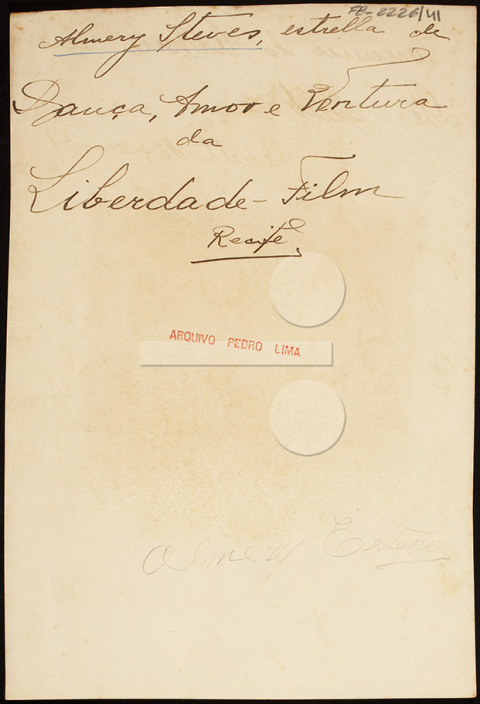 FB-2226/41
Almery Steves, estrella de
Dança, Amor e Ventura
da
Liberdade-Film
Recife,
ARQUIVO PEDRO LIMA
Almery Esteves